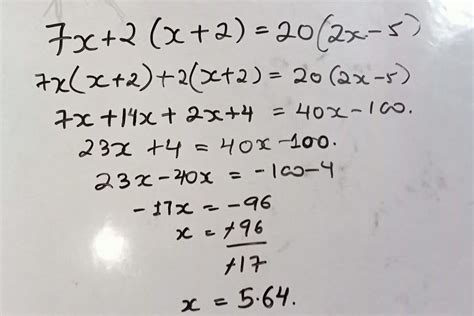 7x+2(x+2)=20(2x-5)
7x(x+2)+2(x+2)=20(2x-5)
7x+14x+2x+4=40x-100.
23x+4=40x-100.
23x-40x=-100-4
-17x=-96
x=-96
-17
x=5.64.